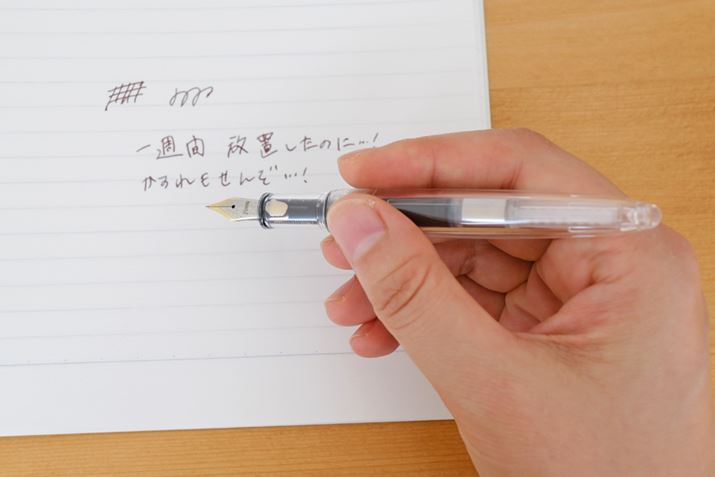 一週間 放置したのに…!
かすれもせんぞ…!